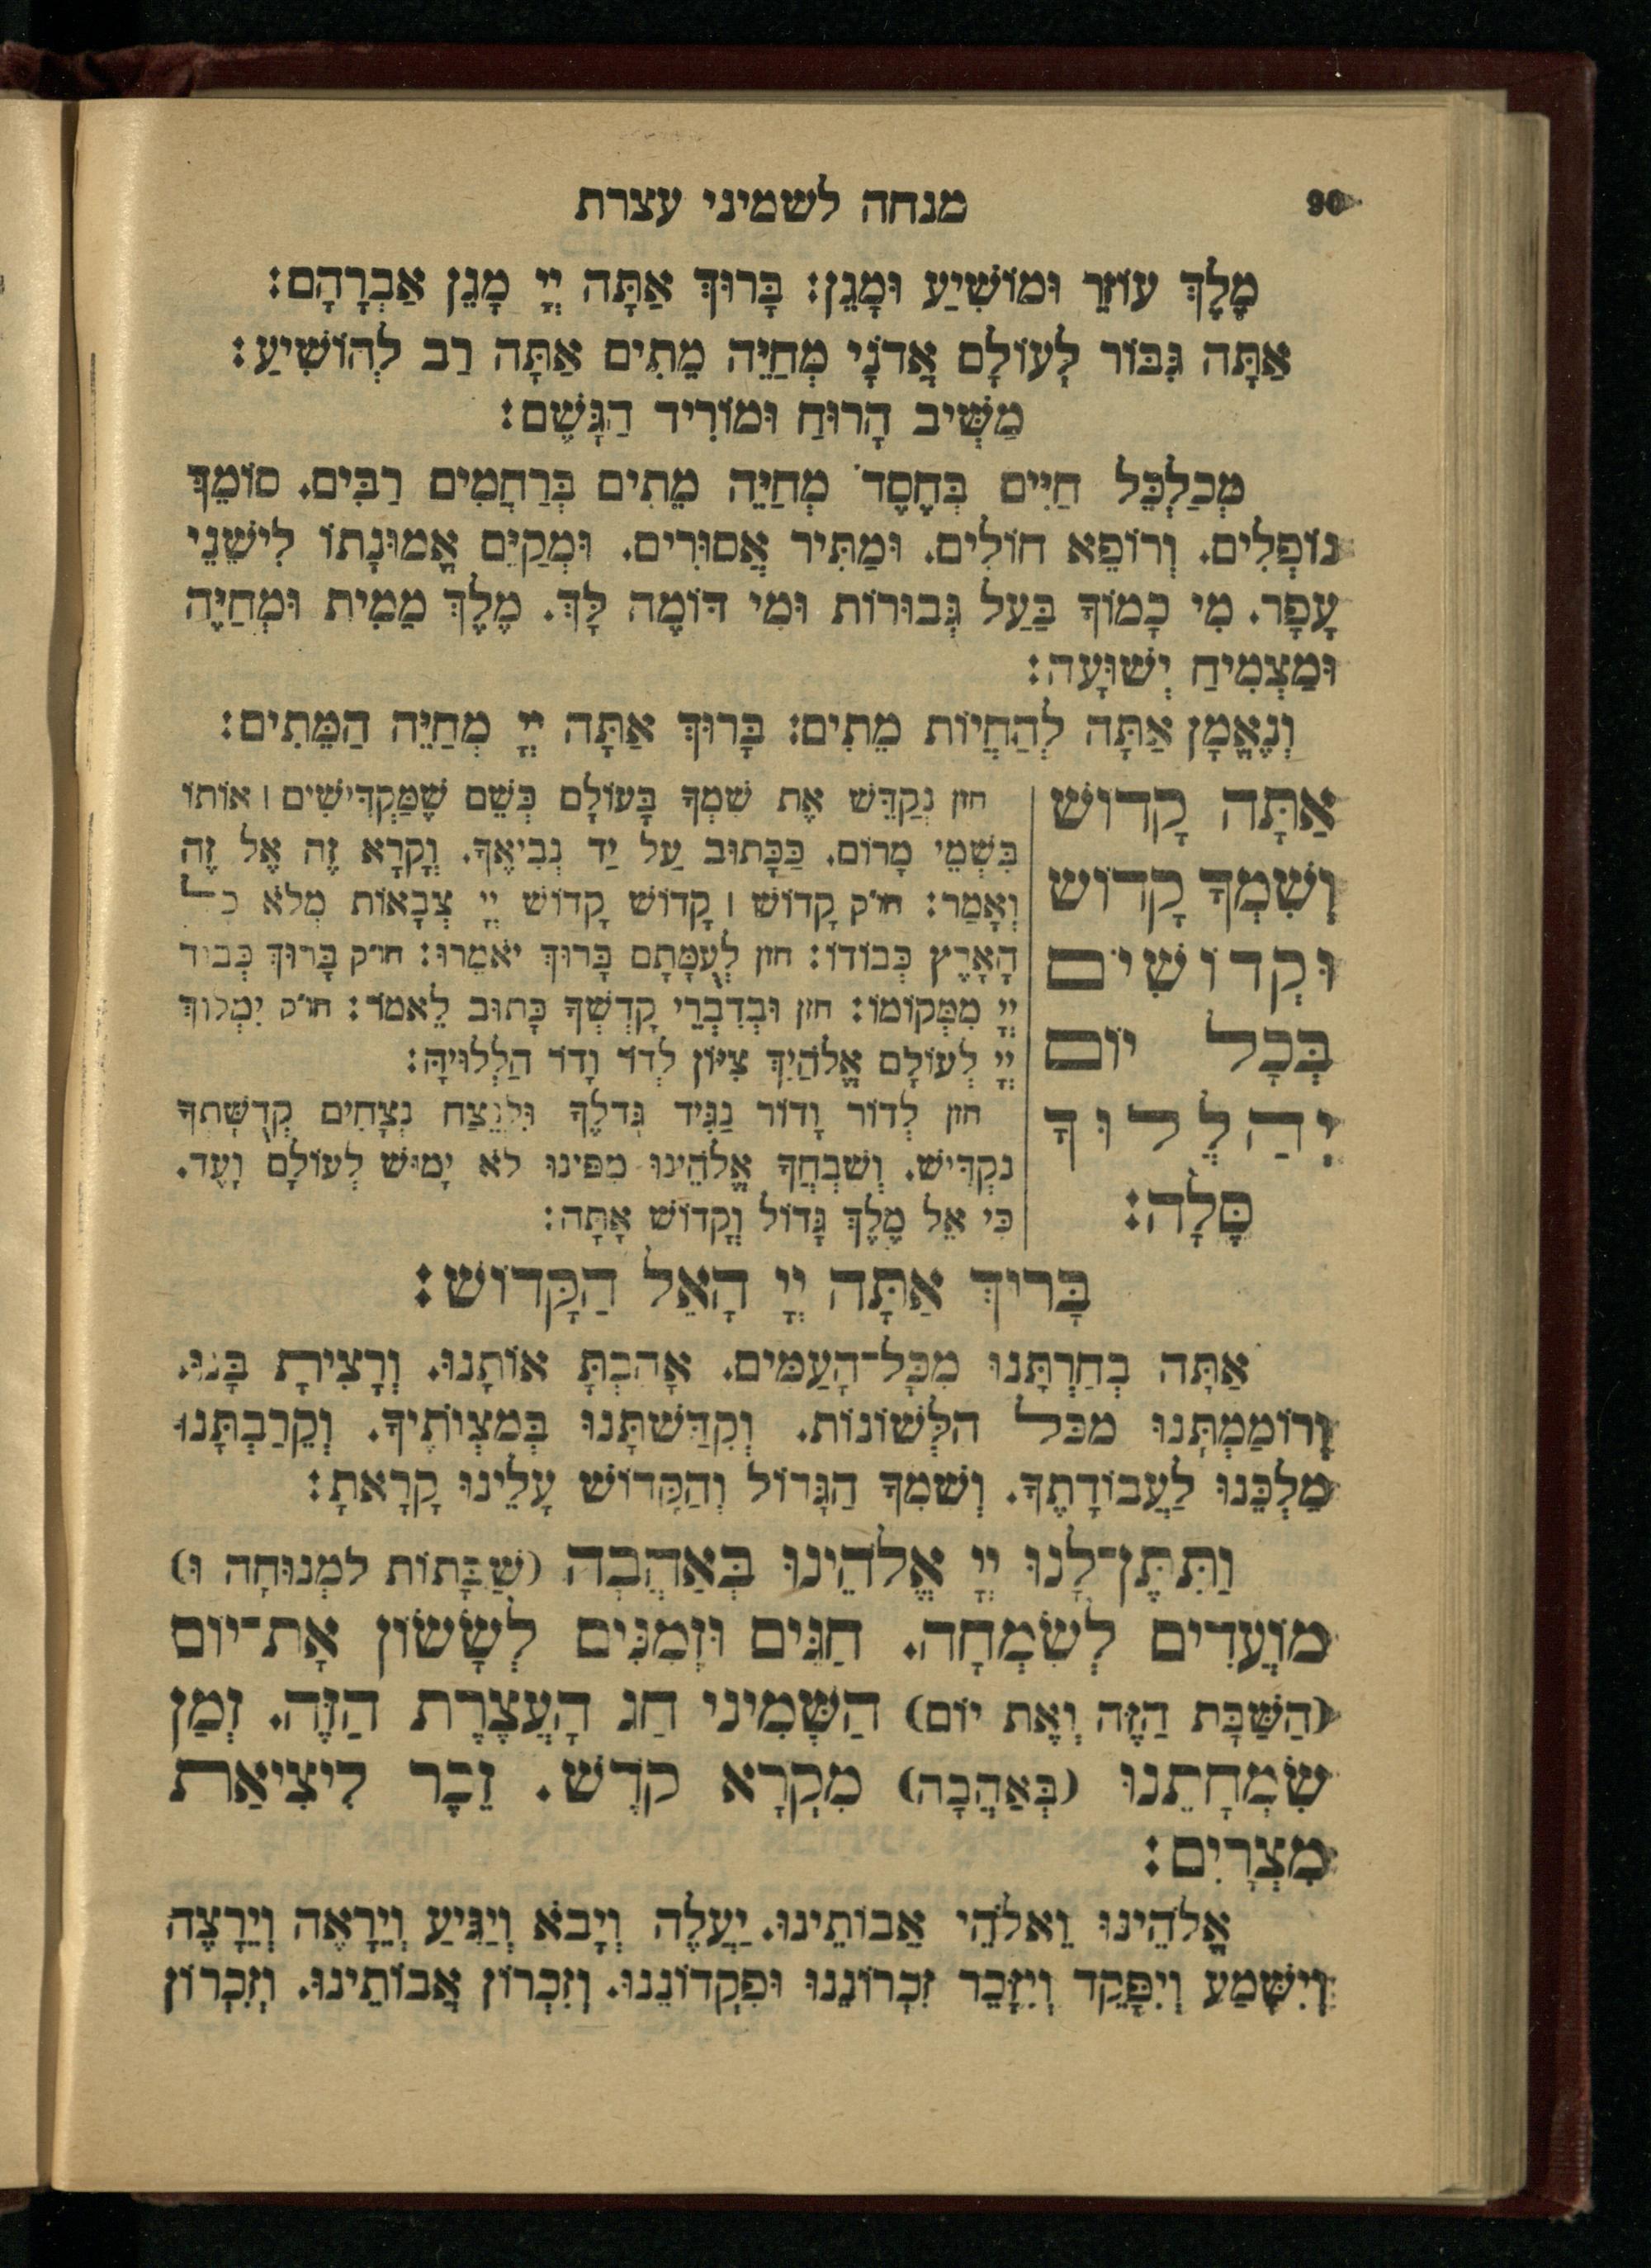 90 מנחה לשמיני עצרת
מֶלֶךְ עוֹזֵר וּמוֹשִׁיעַ וּמָגֵן: בָּרוּךְ אַתָּה יְיָ מָגֵן אַבְרָהָם:
אַתָּה גִּבּוֹר לְעוֹלָם אֲדֹנָי מְחַיֵּה מֵתִים אַתָּה רַב לְהוֹשִׁיעַ:
מַשִּׁיב הָרוּחַ וּמוֹרִיד הַגָּשֶׁם:
מְכַלְכֵּל חַיִּים בְּחֶסֶד מְחַיֵּה מֵתִים בְּרַחֲמִים רַבִּים. סוֹמֵךְ
נוֹפְלִים. וְרוֹפֵא חוֹלִים. וּמַתִּיר אֲסוּרִים. וּמְקַיֵּם אֱמוּנָתוֹ לִישֵׁנֵי
עָפָר. מִי כָמוֹךָ בַּעַל גְּבוּרוֹת וּמִי דּוֹמֶה לָּךְ. מֶלֶךְ מֵמִית וּמְחַיֶּה
וּמַצְמִיחַ יְשׁוּעָה:
וְנֶאֱמָן אַתָּה לְהַחֲיוֹת מֵתִים: בָּרוּךְ אַתָּה יְיָ מְחַיֵּה הַמֵּתִים:
אַתָּה קָדוֹשׁ
וְשִׁמְךָ קָדוֹשׁ
וּקְדוֹשִׁים
בְּכָל יוֹם
יְהַלְלוּךָ
סֶּלָה:
חזן נְקַדֵּשׁ אֶת שִׁמְךָ בָּעוֹלָם כְּשֵׁם שֶׁמַּקְדִּישִׁים ׀ אוֹתוֹ
בִּשְׁמֵי מָרוֹם. כַּכָּתוּב עַל יַד נְבִיאֶךָ. וְקָרָא זֶה אֶל זֶה
וְאָמַר: חו״ק קָדוֹשׁ ׀ קָדוֹשׁ קָדוֹשׁ יְיָ צְבָאוֹת מְלֹא כל
הָאָרֶץ כְּבוֹדוֹ: חזן לְעֻמָּתָם בָּרוּךְ יֹאמֵרוּ: חו״ק בָּרוּךְ כְּבוֹד
יְיָ מִמְּקוֹמוֹ: חזן וּבְדִבְרֵי קָדְשְׁךָ כָּתוּב לֵאמֹר: חו״ק יִמְלוֹךְ
יְיָ לְעוֹלָם אֱלֹהַיִךְ צִיּוֹן לְדֹר וָדֹר הַלְלוּיָהּ:
חזן לְדוֹר וָדוֹר נַגִּיד גָּדְלֶךָ וּלְנֵצַח נְצָחִים קְדֻשָּׁתְךָ
נַקְדִּישׁ. וְשִׁבְחֲךָ אֱלֹהֵינוּ מִפִּינוּ לֹא יָמוּשׁ לְעוֹלָם וָעֶד.
כִּי אֵל מֶלֶךְ גָּדוֹל וְקָדוֹשׁ אָתָּה:
בָּרוּךְ אַתָּה יְיָ הָאֵל הַקָּדוֹשׁ:
אַתָּה בְחַרְתָּנוּ מִכָּל־הָעַמִּים. אָהַבְתָּ אוֹתָנוּ. וְרָצִיתָ בָּנוּ.
וְרוֹמַמְתָּנוּ מכל הלְּשׁוֹנוֹת. וְקִדַּשְׁתָּנוּ בְּמִצְוֹתֶיךָ. וְקֵרַבְתָּנוּ
מַלְכֵּנוּ לַעֲבוֹדָתֶךָ. וְשִׁמְךָ הַגָּדוֹל וְהַקָּדוֹשׁ עָלֵינוּ קָרָאתָ:
וַתִּתֶּן־לָנוּ יְיָ אֱלֹהֵינוּ בְּאַהֲבָה (שַׁבָּתוֹת לִמְנוּחָה וּ)
מוֹעֲדִים לְשִׂמְחָה. חַגִּים וּזְמַנִּים לְשָׂשׂוֹן אֶת־יוֹם
(הַשַּׁבָּת הַזֶּה וְאֶת יוֹם) הַשְּׁמִינִי חַג הָעֲצֶרֶת הַזֶּה. זְמַן
שִׂמְחָתֵנוּ (בְּאַהֲבָה) מִקְרָא קֹדֶשׁ. זֵכֶר לִיצִיאַת
מִצְרָיִם:
אֱלֹהֵינוּ וֵאלֹהֵי אֲבוֹתֵינוּ. יַעֲלֶה וְיָבֹא וְיַגִּיעַ וְיֵרָאֶה וְיֵרָצֶה
וְיִשָּׁמַע וְיִפָּקֵד וְיִזָּכֵר זִכְרוֹנֵנוּ וּפִקְדוֹנֵנוּ. וְזִכְרוֹן אֲבוֹתֵינוּ. וְזִכְרוֹן